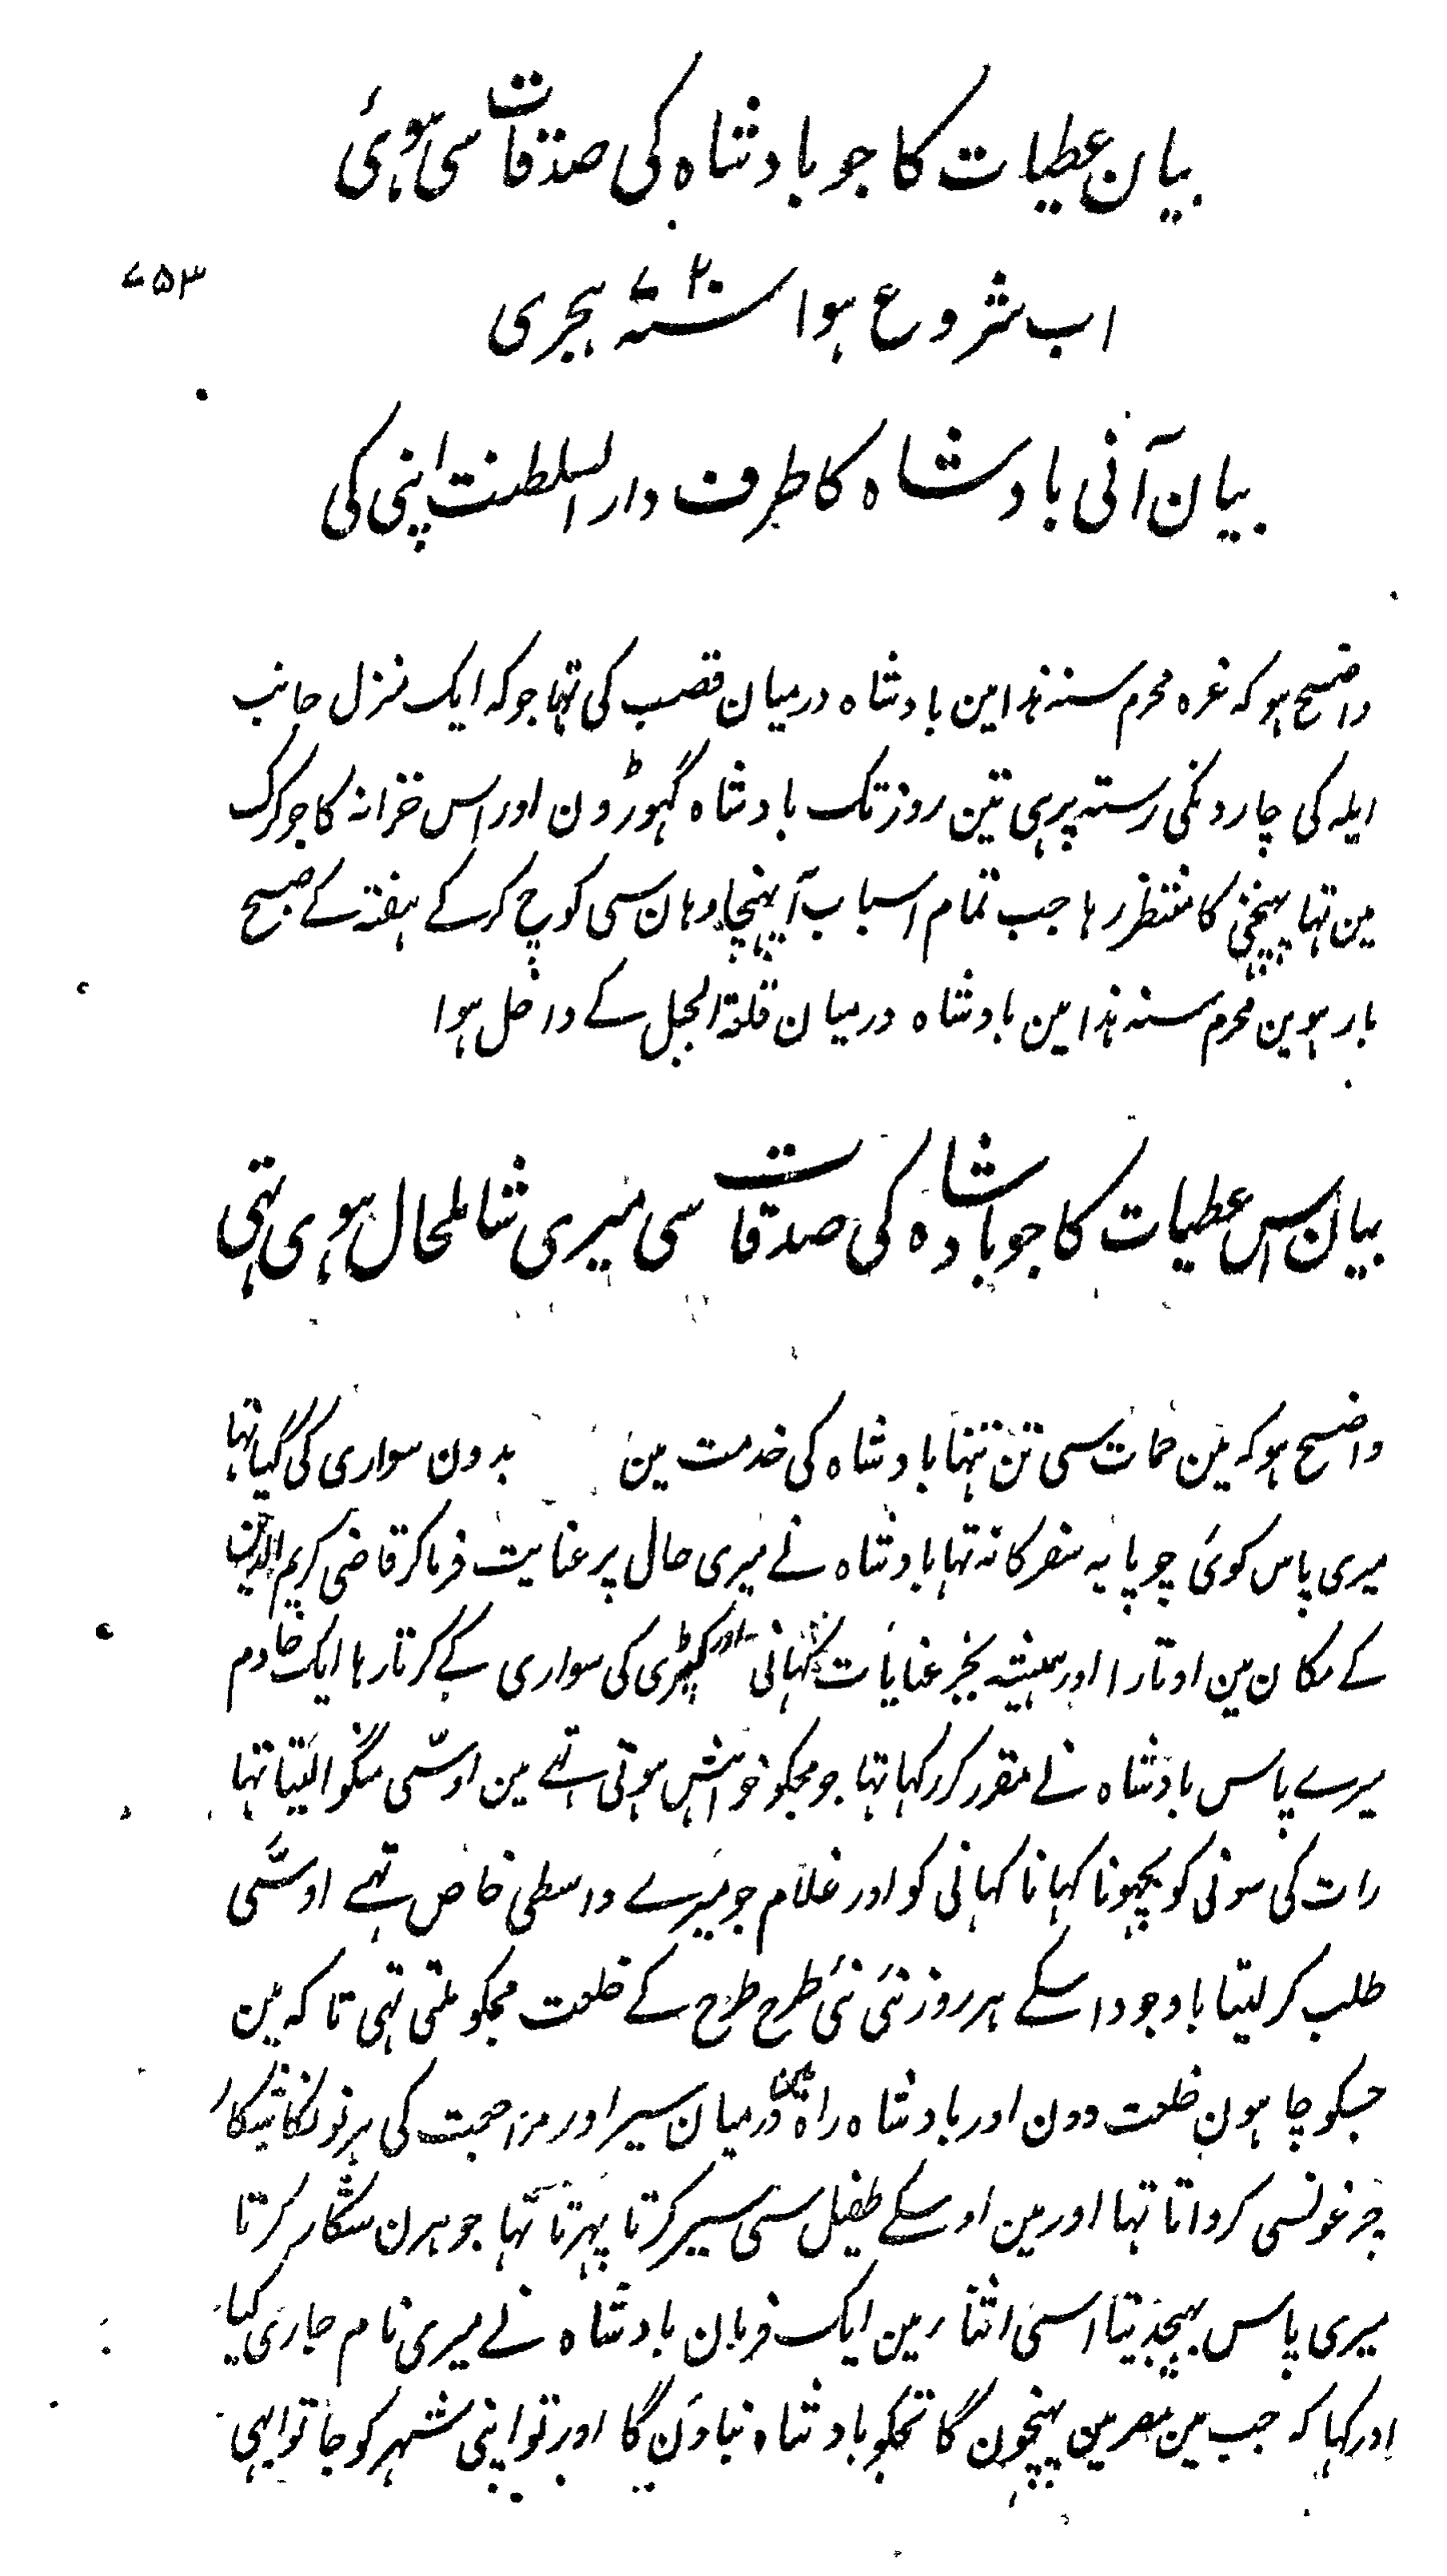 بیان عطیات کا جو بادشاہ کی صدقات سی ہوئی
۷۵۳
اب شروع ہوا سنہ ۷۲۰ ہجری
بیان آنی بادشاہ کا طرف دار السلطنت اپنی کی
واضح ہو کہ غرہ محرم سنہ ہذا مین بادشاہ درمیان قصب کی تہا جو کہ ایک منزل جانب
ایلہ کی چاردنکی رستہ پر ہی تین روز تک بادشاہ گہوڑون اور اس خزانہ کا جو کرک
مین تہا پہنچنی کا منتظر رہا جب تمام اسباب آ پہنچا وہان سی کوچ کر کے ہفتہ کے صبح
بارہوین محرم سنہ ہذا مین بادشاہ درمیان قلعۃ الجبل کے داخل ہوا
بیان اس عطیات کا جو بادشاہ کی صدقات سی میری شاملحال ہوی تہی
واضح ہو کہ مین حمات سی تن تنہا بادشاہ کی خدمت مین بدون سواری کی گیا تہا
میری پاس کوئی چوپایہ سفر کا نہ تہا بادشاہ نے میری حال پر عنایت فرما کر قاضی کریم الدین
کے مکان مین اوتارا اور ہمیشہ بخبر عنایات کہانی اور کپڑی کی سواری کے کرتا رہا ایک خادم
میرے پاس بادشاہ نے مقرر کر رکہا تہا جو مجکو خواہش ہوتی تہے مین اوسّی منگوا لیتا تہا
رات کی سونی کو بچہونا کہانا کہانی کو اور غلام جو میرے واسطی خاص تہے اوسّی
طلب کر لیتا باوجود اسکے ہر روز نئی نئی طرح طرح کے خلعت مجکو ملتی تہی تا کہ مین
جسکو چاہون خلعت دون اور بادشاہ راہ مین درمیان سیر اور مزاحمت کی ہرنونکا شکار
چرغونسی کرواتا تہا اور مین اوسکے طفیل سی سیر کرتا پہرتا تہا جو ہرن شکار کرتا
میری پاس بہیجدیتا اسی اثنا مین ایک فرمان بادشاہ نے میری نام جاری کیا
اور کہا کہ جب مین مصر مین پہنچون گا تجکو بادشاہ بناون گا اور تو اپنی شہر کو جا تو ابہی